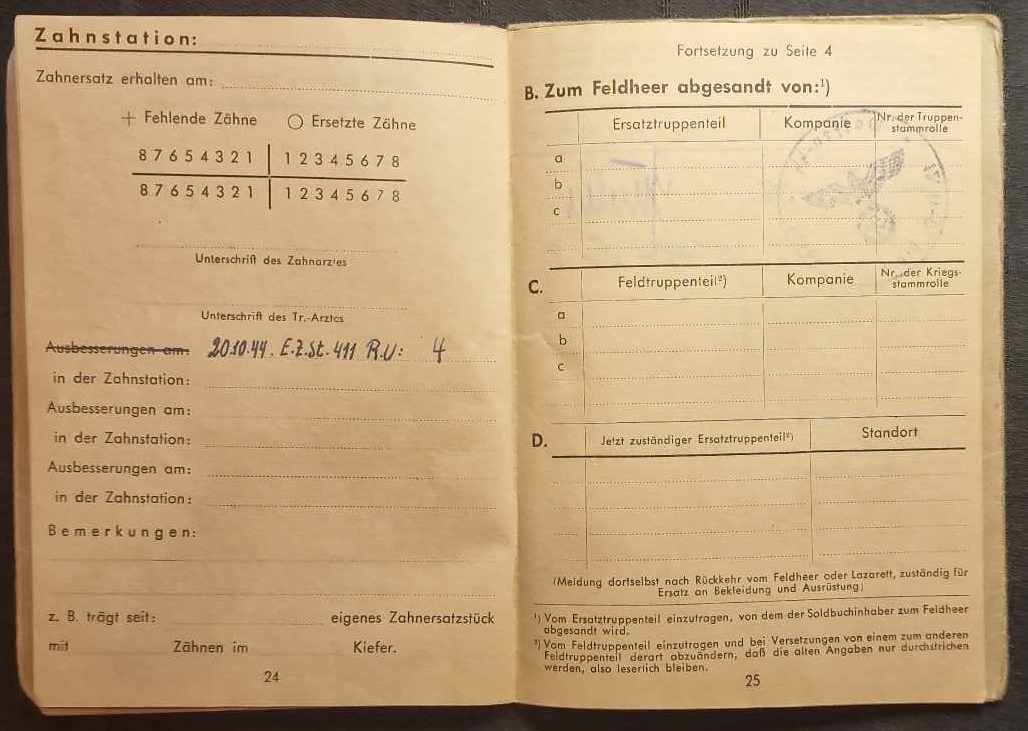 Zahnstation:
Zahnersatz erhalten am:
+ Fehlende Zähne ○ Ersetzte Zähne
8 7 6 5 4 3 2 1 | 1 2 3 4 5 6 7 8
8 7 6 5 4 3 2 1 | 1 2 3 4 5 6 7 8
Unterschrift des Zahnarztes
Unterschrift des Tr.-Arztes
Ausbesserungen am: 20.10.44. E.Z.St. 411 R.U: 4
in der Zahnstation:
Ausbesserungen am:
in der Zahnstation:
Ausbesserungen am:
in der Zahnstation:
Bemerkungen:
z. B. trägt seit: eigenes Zahnersatzstück
mit Zähnen im Kiefer.
24
Fortsetzung zu Seite 4
B. Zum Feldheer abgesandt von:¹)
Ersatztruppenteil Kompanie Nr. der Truppen-
stammrolle
a
b
c
C. Feldtruppenteil²) Kompanie Nr. der Kriegs-
stammrolle
a
b
c
D. Jetzt zuständiger Ersatztruppenteil²) Standort
(Meldung dortselbst nach Rückkehr vom Feldheer oder Lazarett, zuständig für
Ersatz an Bekleidung und Ausrüstung)
¹) Vom Ersatztruppenteil einzutragen, von dem der Soldbuchinhaber zum Feldheer
abgesandt wird.
²) Vom Feldtruppenteil einzutragen und bei Versetzungen von einem zum anderen
Feldtruppenteil derart abzuändern, daß die alten Angaben nur durchstrichen
werden, also leserlich bleiben.
25